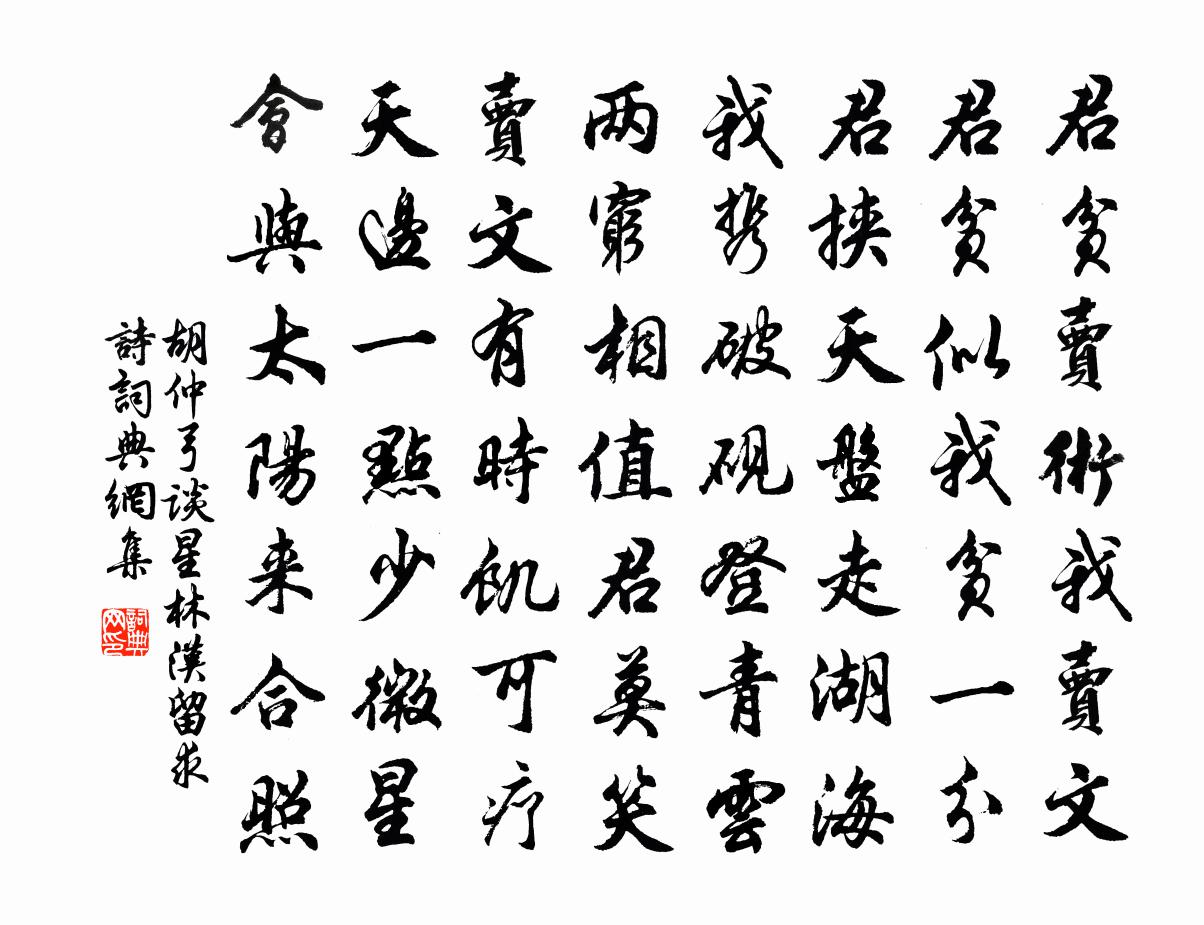 君貧賣術我賣文
君貧似我貧一分
君挾天盤走湖海
我携破硯登青雲
两窮相值君莫笑
賣文有時飢可疗
天邊一點少微星
會與太陽来合照
胡仲弓談星林漢留求
詩詞典網集
詞典
网印